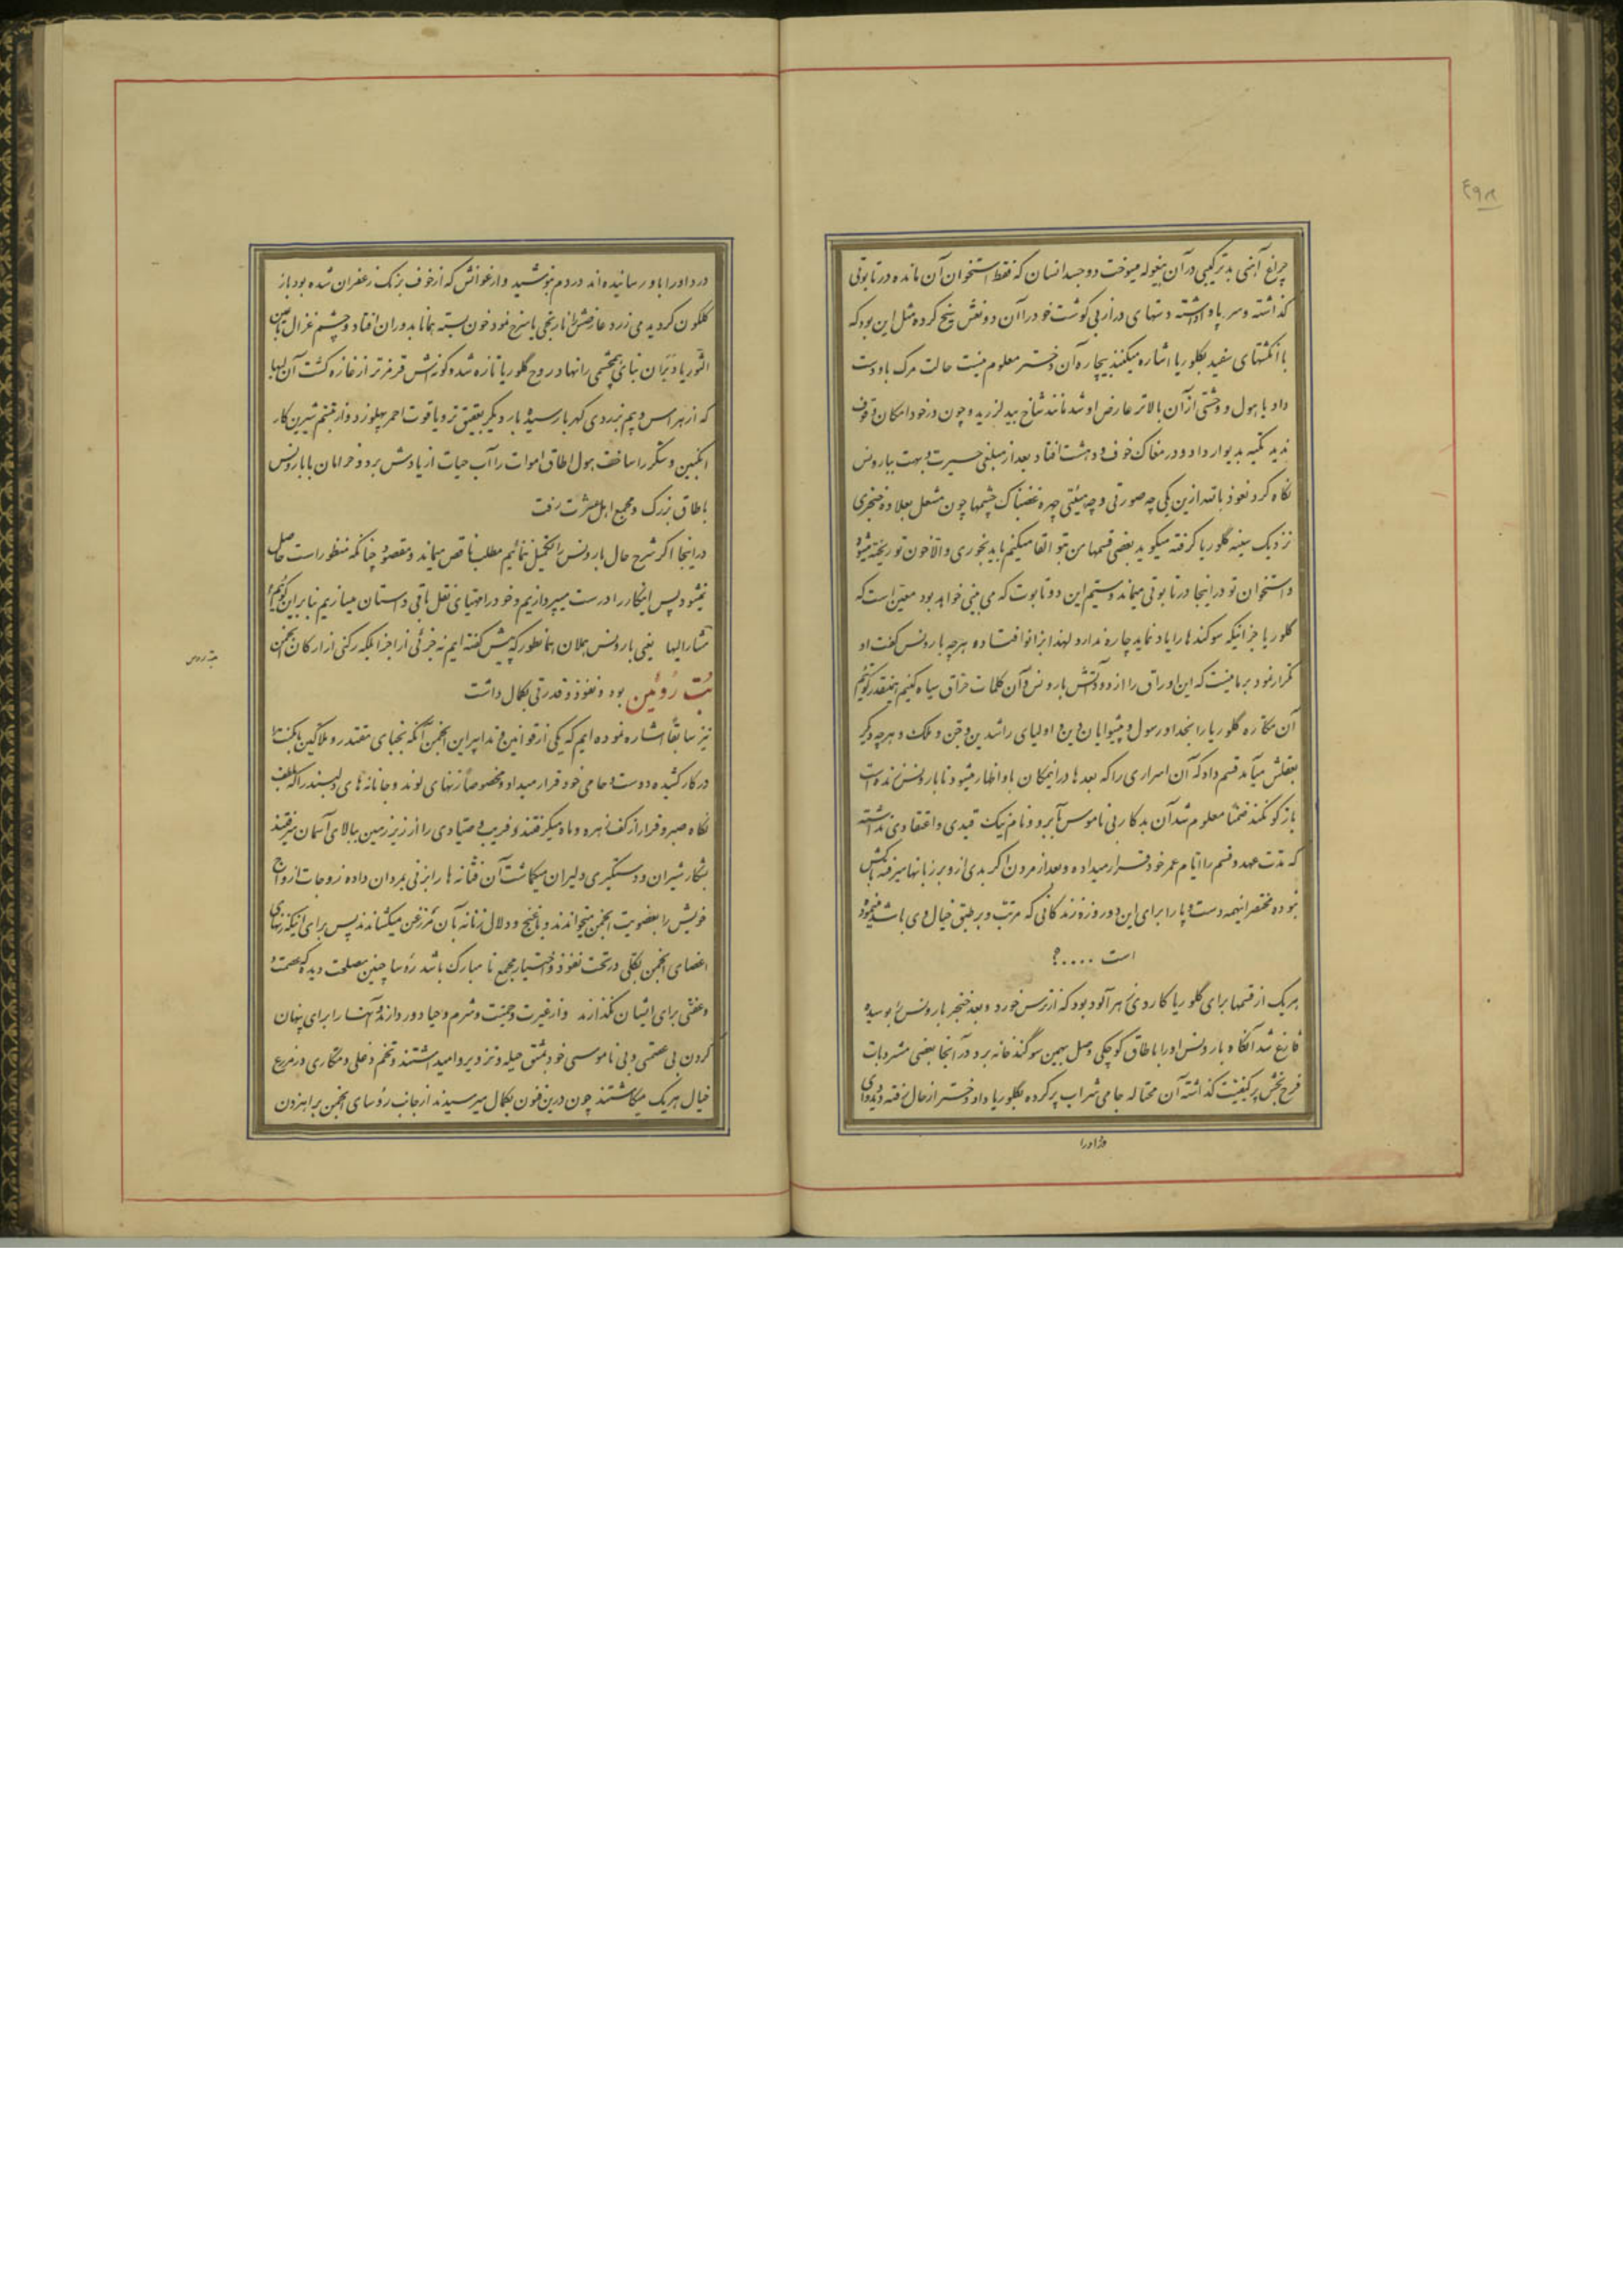 چراغ آهنی بدترکیبی در آن بیغوله میسوخت دو جسد انسان که فقط استخوان آن مانده در تابوتی
گذاشته و سر پا واداشته دستهای دراز بی گوشت خود را آن دو نعش پنج کرده مثل این بود که
با انگشتهای سفید بگلوریا اشاره میکنند بیچاره آن دختر معلوم نیست حالت مرگ باو دست
داد یا هول و وحشتی از آن بالاتر عارض او شد مانند شاخ بید لرزید و چون در خود امکان وقوف
ندید تکیه بدیوار داد و در مغاک خوف و دهشت افتاد بعد از مبلغی حیرت و بهت ببارونس
نگاه کرد نعوذ بالله ازین یکی چه صورتی و چه هیئتی چهره غضبناک چشمها چون مشعل بعلاوه خنجری
نزدیک سینه گلوریا گرفته میگوید بعضی قسمها من بتو القا میکنم باید بخوری و الا خون تو ریخته میشود
و استخوان تو در اینجا در تابوتی میماند و ستیم این دو تابوت که می بینی خواهد بود معین است که
گلوریا جز اینکه سوگندها را یاد نماید چاره ندارد لهذا بزانو افتاده هرچه بارونس گفت او
تکرار نمود بر ما نیست که این اوراق را از دود آتش بارونس و آن کلمات حراق سیاه کنیم همینقدر گوئیم
آن مکاره گلوریا را بخدا و رسول و پیشوایان دین و اولیای راشدین و جن و ملک و هرچه دیگر
بعقلش میآمد قسم داد که آن اسراری را که بعدها در اینمکان باو اظهار میشود تا بارونس زنده است
بازگو نکند ضمناً معلوم شد آن بدکار بی ناموس بآبرو و نام نیک قیدی و اعتقادی نداشته
که مدت عهد و قسم را ایام عمر خود قرار میداده و بعد از مردن اگر بدی از او بر زبانها میرفته باکش
نبوده مختصر اینهمه دست و پا را برای این دو روزه زندگانی که مرتب و بر طبق خیال وی باشد مینموده
است ....؟
هریک از قسمها برای گلوریا کاردی زهرآلود بود که از ترس خورد و بعد خنجر بارونس را بوسیده
فارغ شد آنگاه بارونس او را باطاق کوچکی وصل بهمین سوگندخانه برد در آنجا بعضی مشروبات
فرح بخش پر کیفیت گذاشته آن محتاله جامی شراب پر کرده بگلوریا داد دختر از حال رفته دید دوای
درد او را
درد او را باو رسانیده اند در دم بنوشید و ارغوانش که از خوف برنگ زعفران شده بود باز
گلگون گردید می زرد عارضش را نارنجی یا سرخ نمود خون بسته همانا بدوران افتاد و چشم غزال
که از هراس و بیم بزردی کهربا رسیده بار دیگر بعقیق تر و یاقوت احمر پهلو زد و از تبسم شیرین کار
انگبین و شکر را ساخت هول اطاق اموات را آب حیات از یادش برد و خرامان با بارونس
باطاق بزرگ و مجمع اهل عشرت رفت
در اینجا اگر شرح حال بارونس را تکمیل ننمائیم مطلب ناقص میماند و مقصود چنانکه منظور است حاصل
نمیشود پس اینکار را درست میپردازیم و خود را مهیای نقل باقی داستان میسازیم بنابراین گوئیم
مشارالیها یعنی بارونس ملان همانطور که پیش گفته ایم نه جزئی از اجزا بلکه رکنی از ارکان انجمن
بت روئین بود و نفوذ و قدرتی بکمال داشت
نیز سابقاً اشاره نموده ایم که یکی از قوانین و تدابیر این انجمن آنکه نجبای مقتدر و ملاکین با مکنت را
در کار کشیده دوست و حامی خود قرار میداد و مخصوصاً زنهای لوند و جانانه های دلپسند را که بلطف
نگاه صبر و قرار از کف زهره و ماه میگرفتند و فریب و صیادی را از زیر زمین ببالای آسمان میرفتند
بشکار شیران و دستگیری دلیران میگماشت آن فتانه ها را بزنی بمردان داده زوجات ازواج
خویش را بعضویت انجمن میخواندند و با غنج و دلال زنانه بآن مرزغن میکشاندند پس برای اینکه زنهای
اعضای انجمن بکلی در تحت نفوذ و اختیار مجمع نامبارک باشد رؤسا چنین مصلحت دیده که عصمت و
عفتی برای ایشان نگذارند و از غیرت و حمیت و شرم و حیا دور دارند و آنها را برای پنهان
کردن بی عصمتی و بی ناموسی خود بمشق حیله و تزویر وامیداشتند و تخم دغلی و مکاری در مزرع
خیال هریک میکاشتند چون درین فنون بکمال میرسیدند از جانب رؤسای انجمن براهزدن